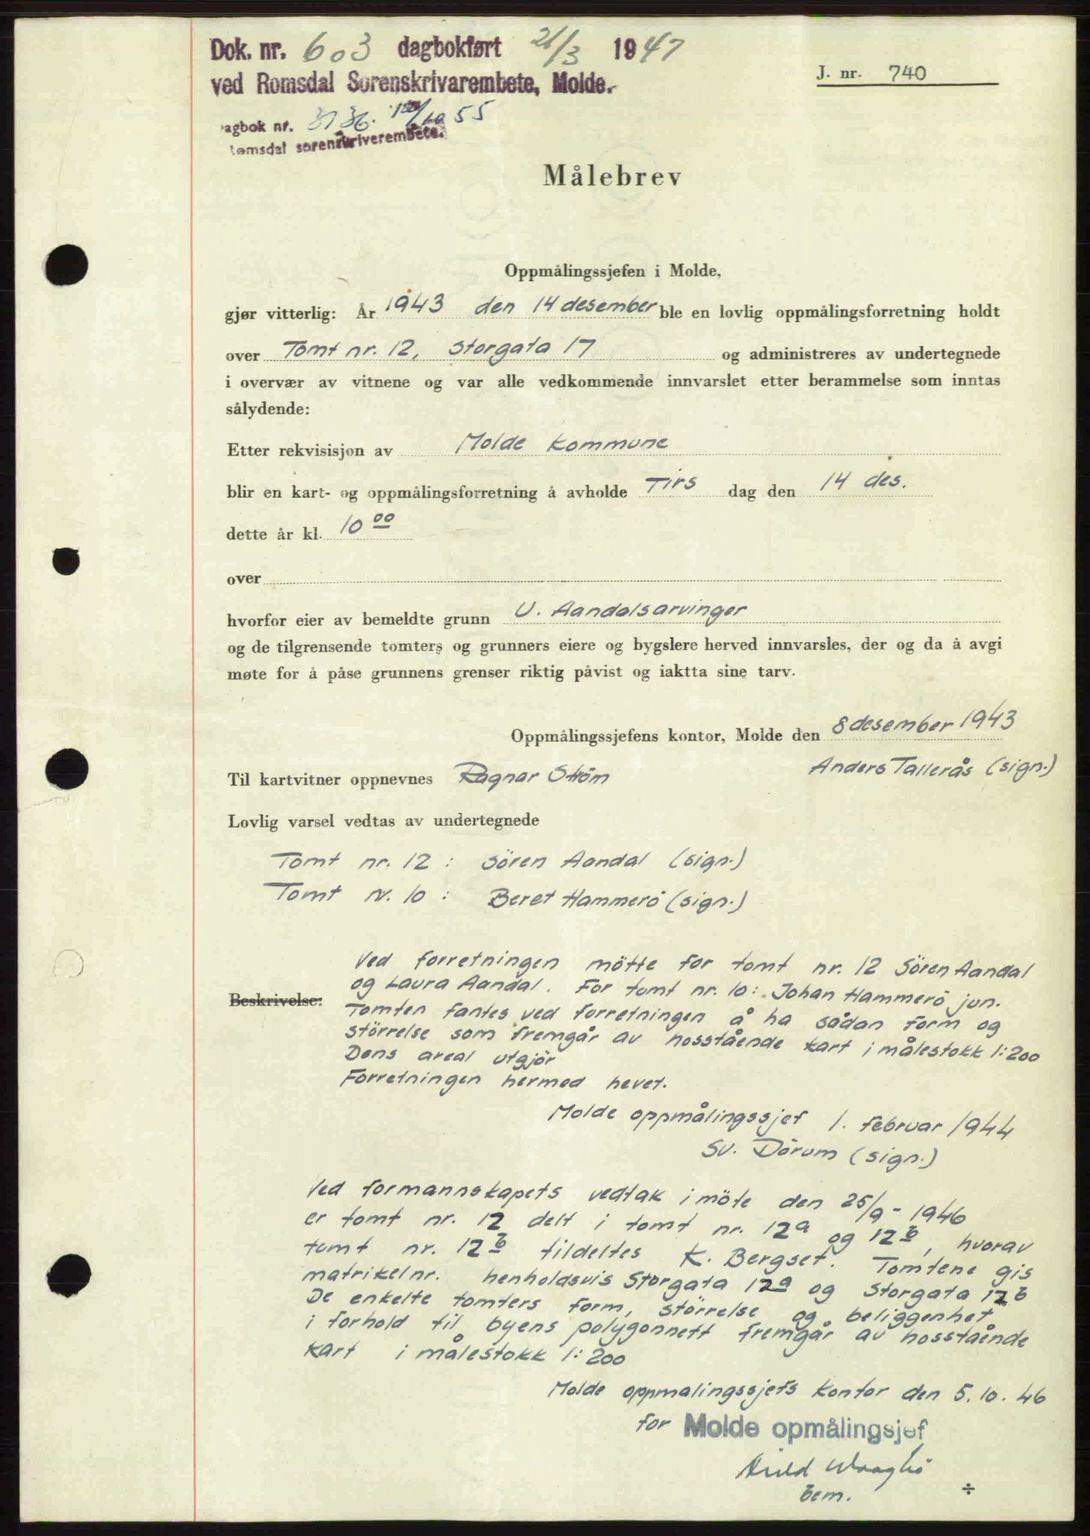 Dok. nr. 603 dagbokført 21/3 1947
ved Romsdal Sorenskrivarembete, Molde.
J. nr. 740
agbok nr. 55
Romsdal sorenskriverembete.
Målebrev
Oppmålingssjefen i Molde,
gjør vitterlig: År 1943 den 14 desember ble en lovlig oppmålingsforretning holdt
over Tomt nr. 12, Storgata 17 og administreres av undertegnede
i overvær av vitnene og var alle vedkommende innvarslet etter berammelse som inntas
sålydende:
Etter rekvisisjon av Molde Kommune
blir en kart- og oppmålingsforretning å avholde Tirs dag den 14 des.
dette år kl. 10 00
over
hvorfor eier av bemeldte grunn U. Aandalsarvinger
og de tilgrensende tomters og grunners eiere og bygslere herved innvarsles, der og da å avgi
møte for å påse grunnens grenser riktig påvist og iaktta sine tarv.
Oppmålingssjefens kontor, Molde den 8 desember 1943
Til kartvitner oppnevnes Ragnar Ström Anders Tallerås (sign.)
Lovlig varsel vedtas av undertegnede
Tomt nr. 12 : Sören Aandal (sign.)
Tomt nr. 10 : Beret Hammerö (sign.)
Ved forretningen mötte for tomt nr. 12 Sören Aandal
og Laura Aandal. For tomt nr. 10: Johan Hammerö jun.
Beskrivelse:
Tomten fantes ved forretningen å ha sådan form og
störrelse som fremgår av hosstående kart i målestokk 1:200
Dens areal utgjör
Forretningen hermed hevet.
Molde oppmålingssjef 1. februar 1944
Sv. Dörum (sign.)
Ved formannskapets vedtak i möte den 25/9 - 1946
er tomt nr. 12 delt i tomt nr. 12a og 12b, hvorav
tomt nr. 12b tildeltes K. Bergset. Tomtene gis
matrikelnr. henholdsvis Storgata 12a og Storgata 12b
De enkelte tomters form, störrelse og beliggenhet
i forhold til byens polygonnett fremgår av hosstående
kart i målestokk 1:200
Molde oppmalingssjefs kontor den 5.10.46
for Molde opmålingsjef
fem.
÷